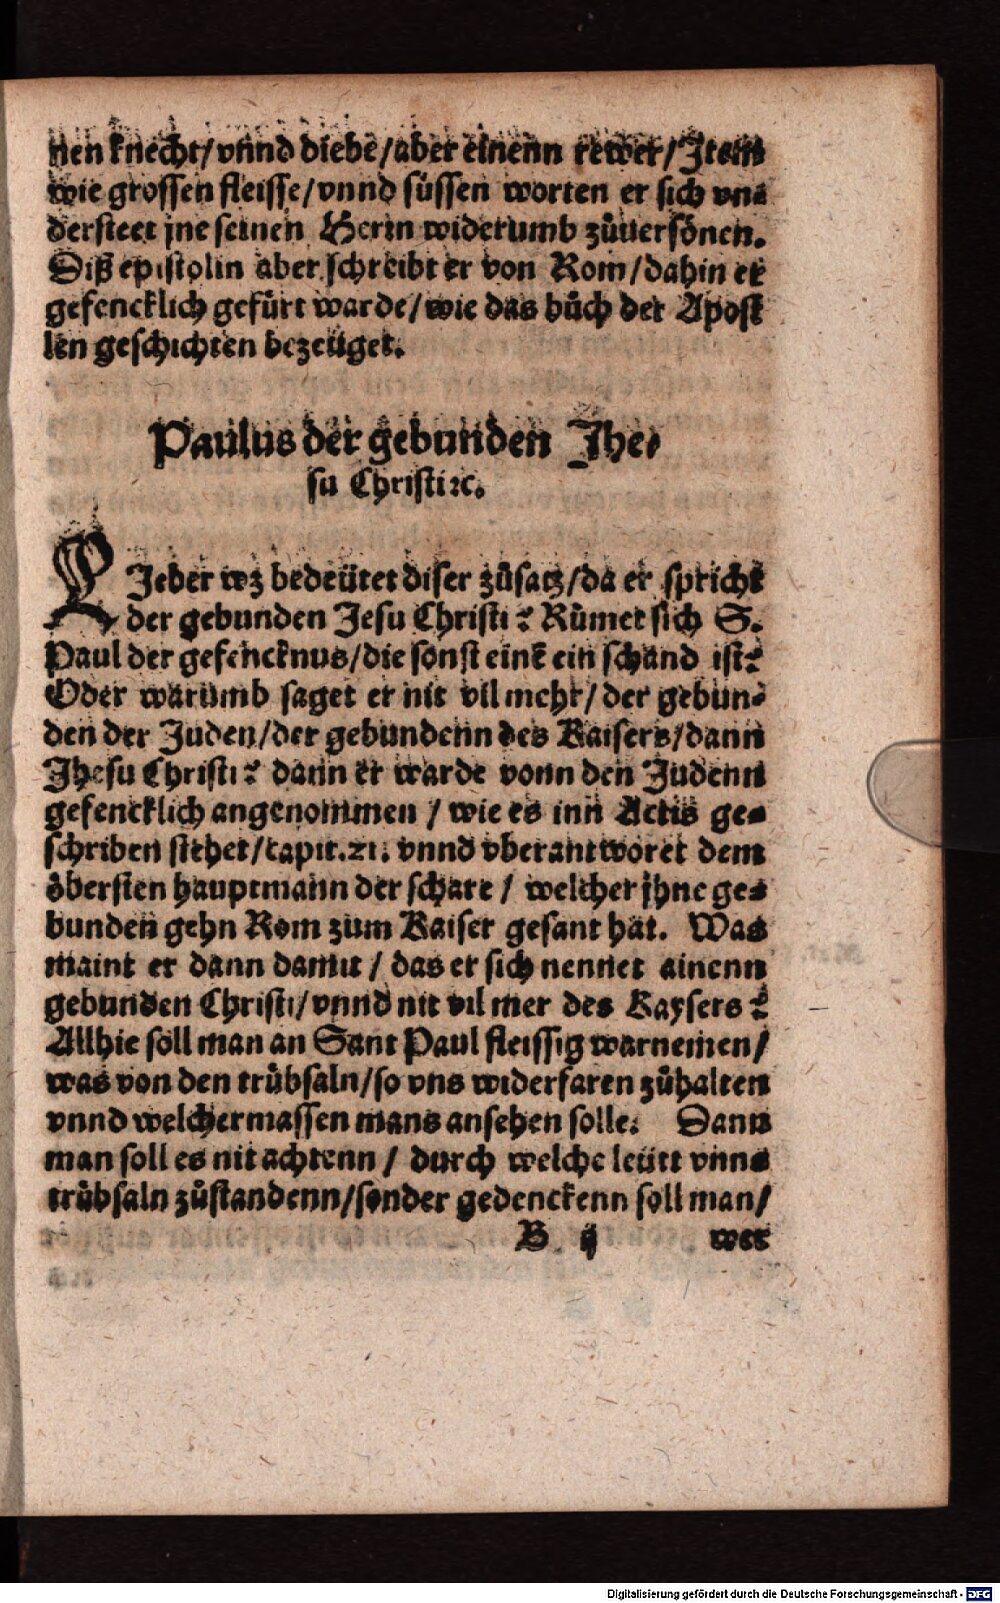 nen knecht/vnnd diebe/aber einenn rewer/Item
wie grossen fleisse/vnnd süssen worten er sich vn⸗
dersteet jne seinen Herrn widerumb zůuersönen.
Diß epistolin aber schreibt er von Rom/dahin er
gefencklich gefürt warde/wie das bůch der Apost
len geschichten bezeüget.
Paulus der gebunden Jhe⸗
su Christi ⁊c.
LJeber wz bedeütet diser zůsatz/da er spricht
der gebunden Jesu Christi? Rümet sich S.
Paul der gefencknus/die sonst einē ein schand ist?
Oder warumb saget er nit vil mehr/der gebun⸗
den der Juden/der gebundenn des Kaisers/dann
Jhesu Christi? dann er warde vonn den Judenn
gefencklich angenommen/wie es inn Actis ge⸗
schriben stehet/capit.21. vnnd vberantwortet dem
öbersten hauptmann der schare/welcher jhne ge⸗
bunden gehn Rom zum Kaiser gesant hat. Was
maint er dann damit/das er sich nennet ainenn
gebunden Christi/vnnd nit vil mer des Kaysers?
Allhie soll man an Sant Paul fleissig warnemen/
was von den trübsaln/so vns widerfaren zůhalten
vnnd welchermassen mans ansehen solle. Dann
man soll es nit achtenn/durch welche leütt vnns
trübsaln zůstandenn/sonder gedenckenn soll man/
B ij wer
Digitalisierung gefördert durch die Deutsche Forschungsgemeinschaft - DFG